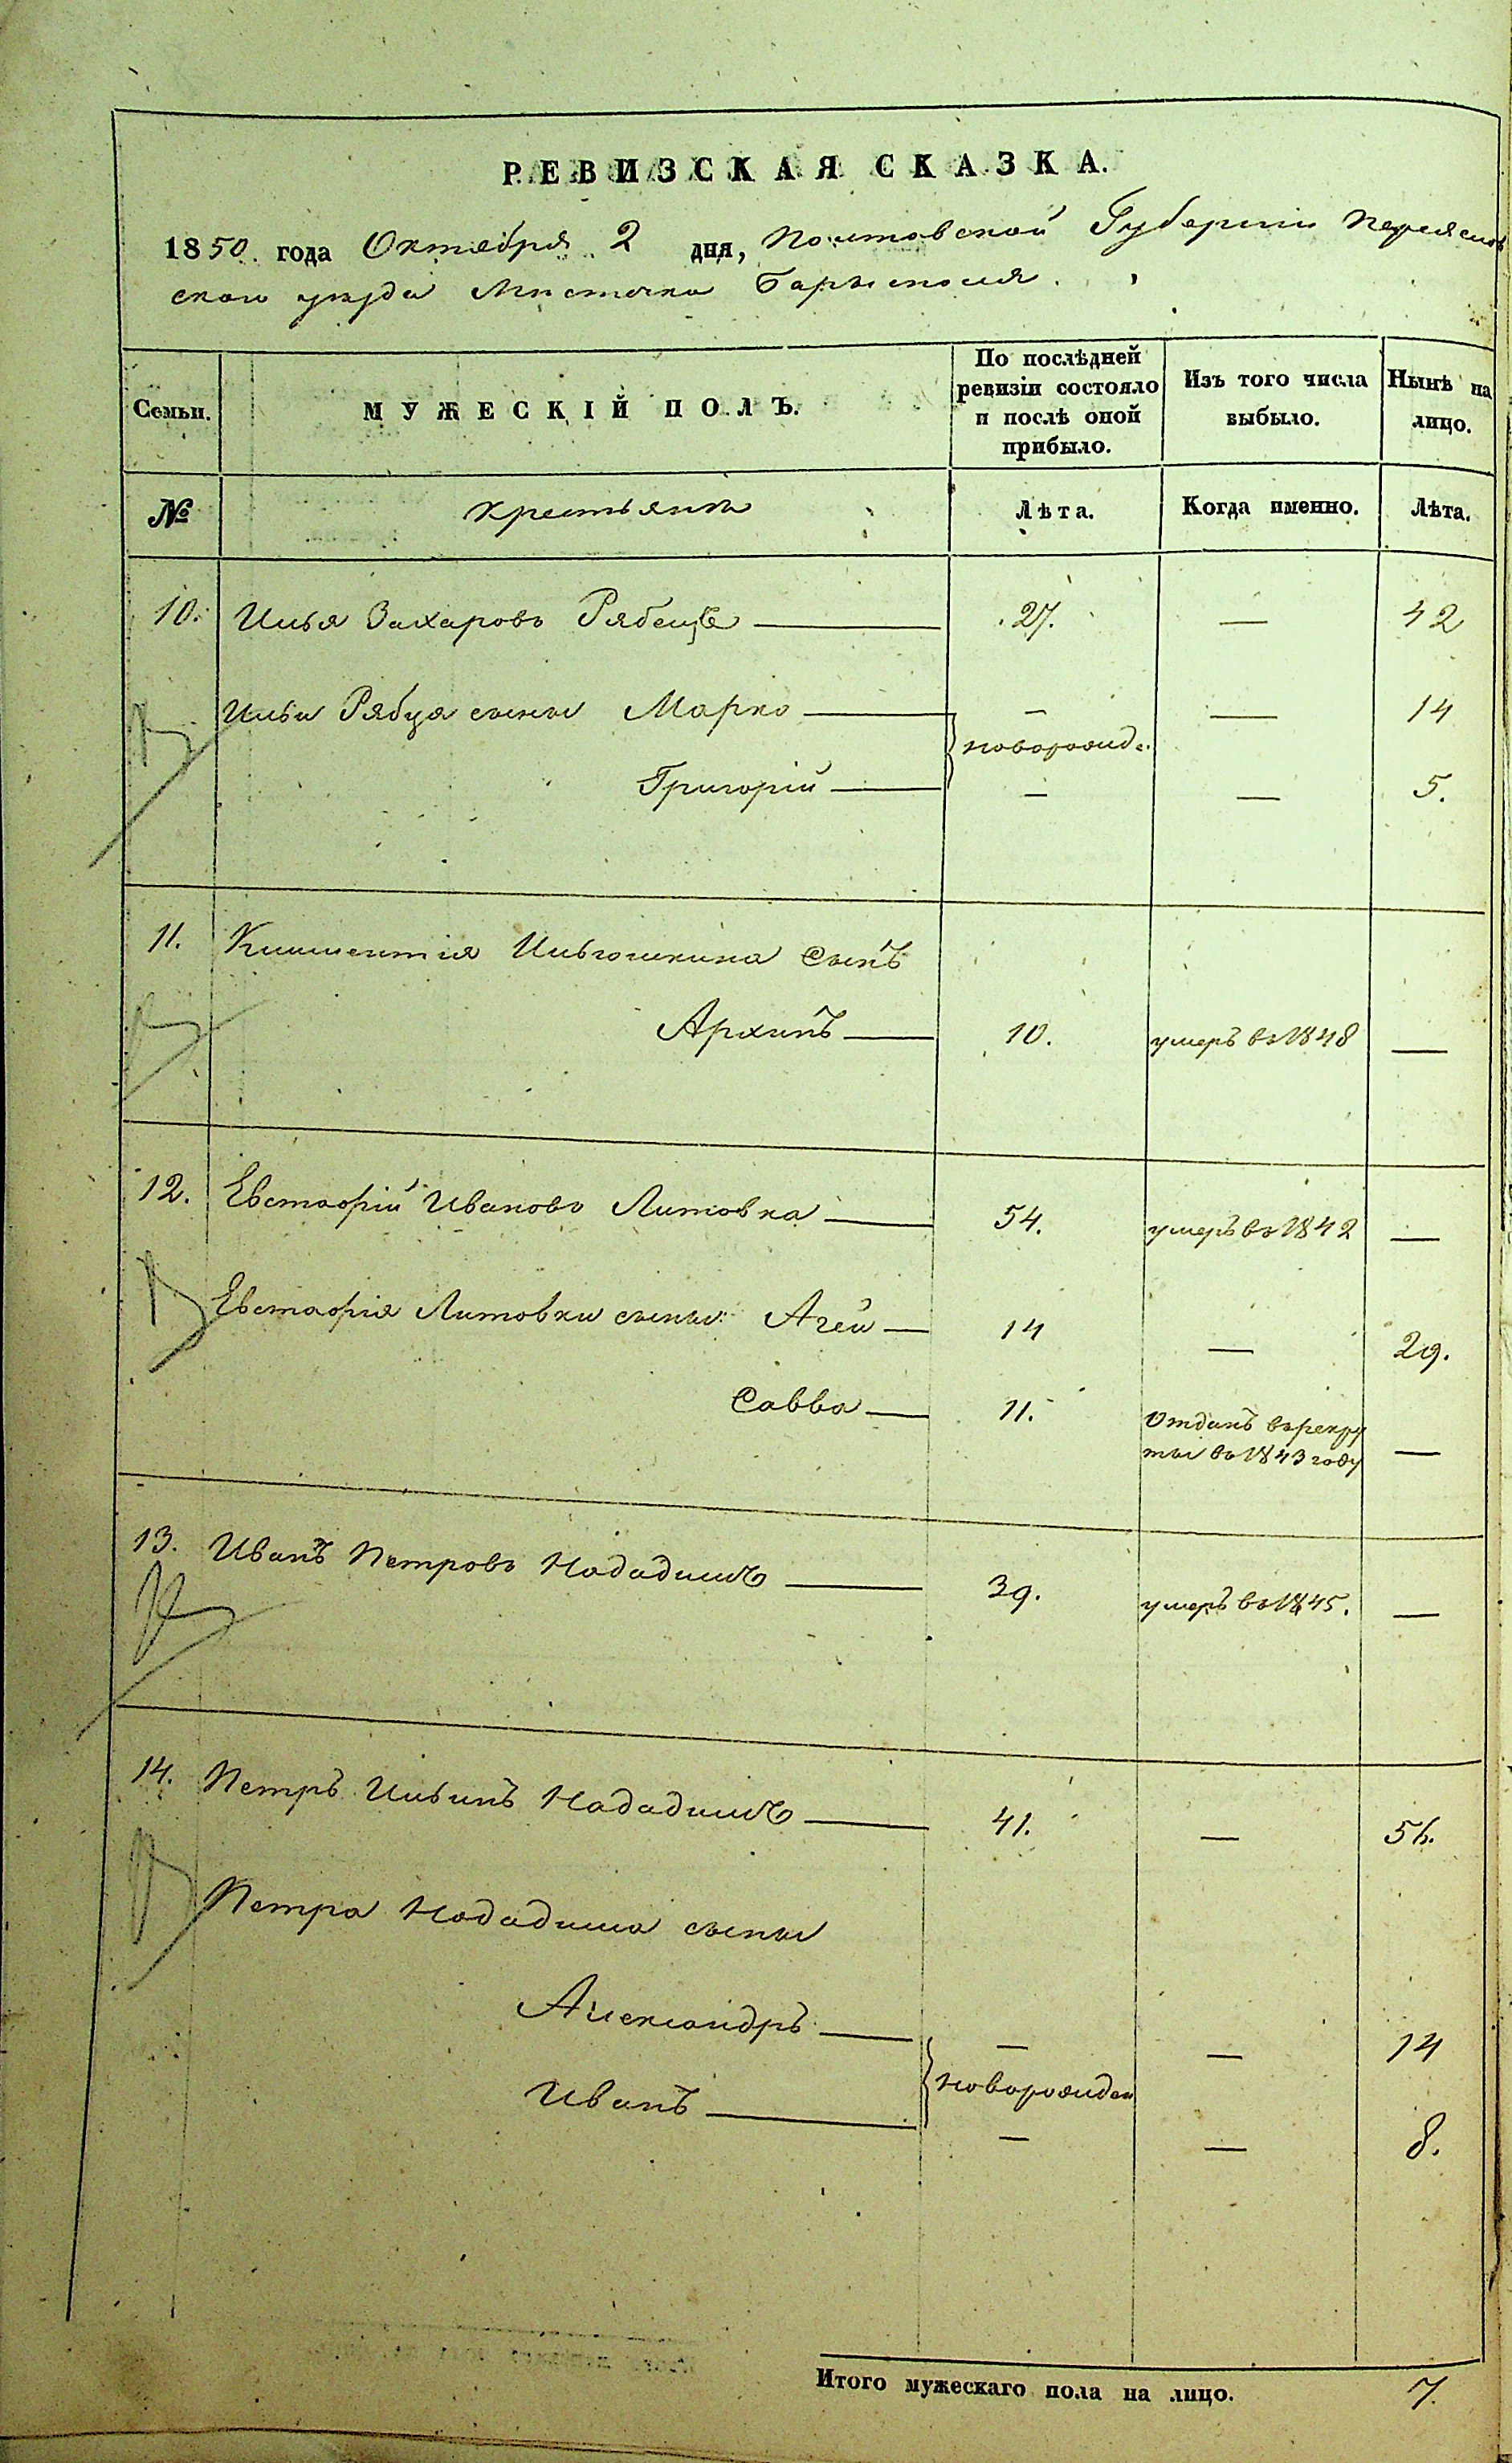 РЕВИЗСКАЯ СКАЗКА.
1850. года Октября 2 дня, Полтавской Губернии Переяслов
скаго уезда Мистечка Барысполя.
Семьи. МУЖЕСКІЙ ПОЛЪ. По послѣдней ревизіи состояло и послѣ оной прибыло. Изъ того числа выбыло. Нынѣ на лицо.
№ Крестьянъ Лѣта. Когда именно. Лѣта.
10. Илья Захаровъ Рябецъ — 27. — 42
Ильи Рябца сыны Марко — — — 14
новорожде.
Григорій — — — 5.
11. Климентія Ильюшкина Сынъ
Архипъ — 10. умеръ въ 1848 —
12. Евстафій Ивановъ Литовка — 54. умеръ въ 1842 —
Евстафія Литовки сыны: Агей — 14 — 29.
Савва — 11. Отданъ въ рекру
ты въ 1843 году —
13. Иванъ Петровъ Кададимъ — 39. умеръ въ 1845. —
14. Петръ Ильинъ Кададимъ — 41. — 56.
Петра Кададима сыны
Александръ — — — 14
новорожден
Иванъ — — — 8.
Итого мужескаго пола на лицо. 7.